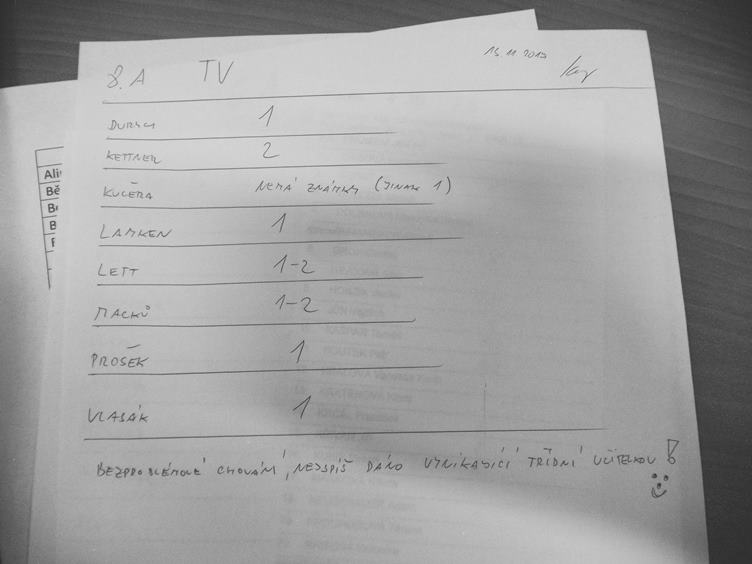 8.A TV 15.11.2017
DURSCH 1
KETTNER 2
KUČERA NEMÁ ZNÁMKY (JINAK 1)
LAMKEN 1
LETT 1-2
MACKŮ 1-2
PROŠEK 1
VLASÁK 1
BEZPROBLÉMOVÉ CHOVÁNÍ, NEJSPÍŠ DÁNO VYNIKAJÍCÍ TŘÍDNÍ UČITELKOU!
Ali
Bě